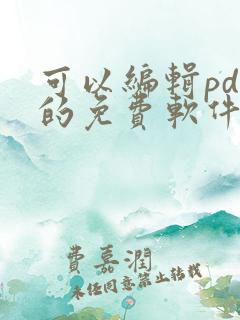 可以編輯pd
的免費軟件
費嘉潤
未任同意禁止转载